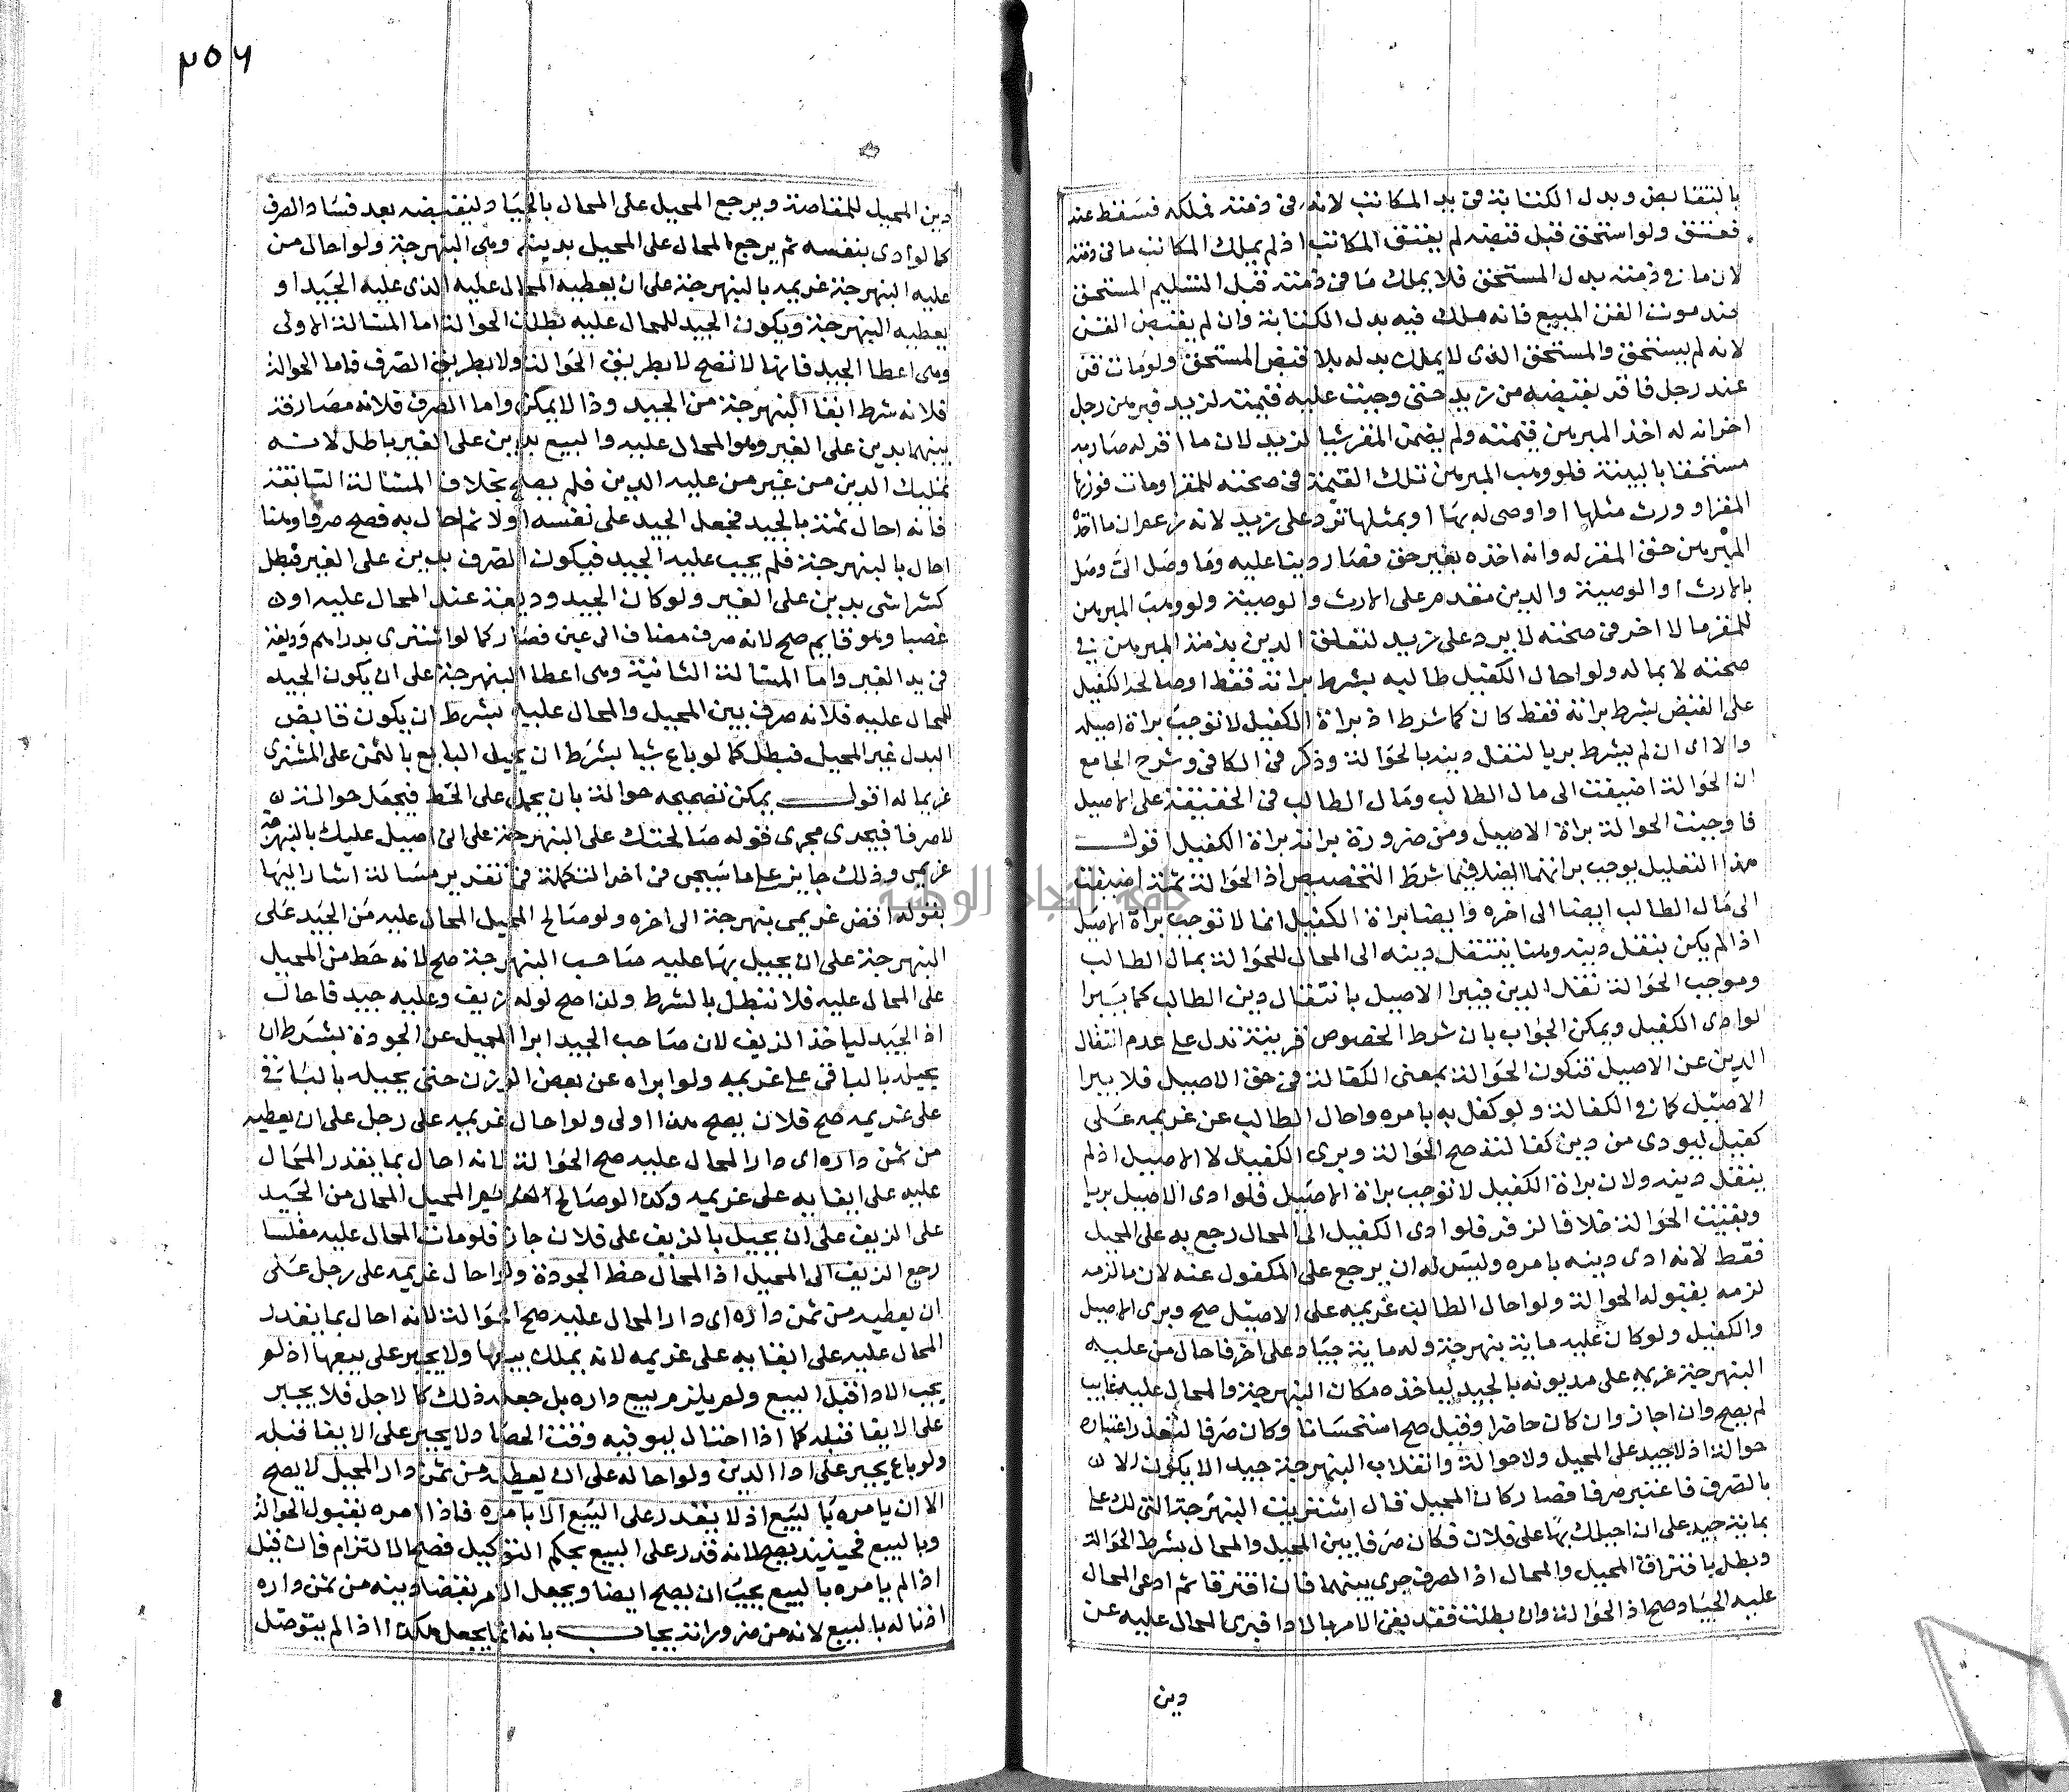 بالتقابض وبدل الكتابة في يد المكاتب لانه في ذمته فملكه فسقط عنه
فعتق ولو استحق قبل قبضه لم يعتق المكاتب اذ لم يملك المكاتب ما في ذمته
لان ما في ذمته بدل المستحق فلا يملك ما في ذمته قبل التسليم المستحق
عند موت القن المبيع فانه ملك فيه بدل الكتابة وان لم يقبض القن
لانه لم يستحق والمستحق الذي لا يملك بدله بلا قبض المستحق ولو مات قن
عند رجل فاقر بقبضه من زيد حتى وجبت عليه قيمته لزيد فبرهن رجل
اخر انه له اخذ المبرهن قيمته ولم يضمن المقر شيا لزيد لان ما اقر له صار به
مستحقا بالبينة فلو وهب المبرهن تلك القيمة في صحته للمقر او مات فورثها
المقر او ورث مثلها او اوصى له بها او بمثلها ترد على زيد لانه زعم ان ما اخذه
المبرهن حق المقر له وانه اخذه بغير حق فصار دينا عليه وما وصل الى وصل
بالارث او الوصية والدين مقدم على الارث والوصية ولو وهب المبرهن
للمقر مالا اخر في صحته لا يرد على زيد لتعلق الدين بذمة المبرهن في
صحته لا بماله ولو احال الكفيل طالبه بشرط براته فقط او صالحه الكفيل
على القبض بشرط براته فقط كان كما شرط اذ براة الكفيل لا توجب براة اصيله
والا اى ان لم يشرط بريا لنقل دينه بالحوالة وذكر في الكافي وشرح الجامع
ان الحوالة اضيفت الى مال الطالب ومال الطالب في الحقيقة على الاصيل
فاوجبت الحوالة براة الاصيل ومن ضرورة براته براة الكفيل اقول
هذا التعليل يوجب براتهما ايضا فيما شرط التخصيص اذ الحوالة ثمة اضيفت
الى مال الطالب ايضا الى اخره وايضا براة الكفيل انما لا توجب براة الاصيل
اذا لم يكن بنقل دينه وهنا ينتقل دينه الى المحال للحوالة بمال الطالب
وموجب الحوالة نقل الدين فيبرا الاصيل بانتقال دين الطالب كما يبرا
لو ادى الكفيل ويمكن الجواب بان شرط الخصوص قرينة تدل على عدم انتقال
الدين عن الاصيل فتكون الحوالة بمعنى الكفالة في حق الاصيل فلا يبرا
الاصيل كما في الكفالة ولو كفل به بامره واحال الطالب عن غريمه على
كفيل ليودى من دين كفالته صح الحوالة وبرى الكفيل لا الاصيل اذ لم
ينقل دينه ولان براة الكفيل لا توجب براة الاصيل فلو ادى الاصيل بريا
وبقيت الحوالة خلافا لزفر فلو ادى الكفيل الى المحال رجع به على المحيل
فقط لانه ادى دينه بامره وليس له ان يرجع على المكفول عنه لان ما لزمه
لزمه بقبوله الحوالة ولو احال الطالب غريمه على الاصيل صح وبرى الاصيل
والكفيل ولو كان عليه ماية بنهرجة وله ماية جياد على اخر فاحال من عليه
البنهرجة غريمه على مديونه بالجيد لياخذه مكان البنهرجة والمحال عليه غايب
لم يصح وان اجاز وان كان حاضرا وقبل صح استحسانا وكان صرفا لتعذر اعتباره
حوالة اذ لا جيد على المحيل ولا حوالة وانقلاب البنهرجة جيد الا يكون الا
بالصرف فاعتبر صرفا فصار كان المحيل قال اشتريت البنهرجة التي لك على
بماية جيد على ان احيلك بها على فلان فكان صرفا بين المحيل والمحال بشرط الحوالة
وبطل بافتراق المحيل والمحال اذ الصرف جرى بينهما فان افترقا ثم ادى المحال
عليه الجياد صح اذ الحوالة وان بطلت فقد بقى الامر بالادا فبرى المحال عليه عن
دين
٢٥٦
دين المحيل للمقاصة ويرجع المحيل على المحال بالجياد لنقبضه بعد فساد الصرف
كما لو ادى بنفسه ثم يرجع المحال على المحيل بدينه وهى البنهرجة ولو احال من
عليه البنهرجة غريمه بالبنهرجة على ان يعطيه المحال عليه الذى عليه الجيد او
يعطيه البنهرجة ويكون الجيد للمحال عليه بطلت الحوالة اما المسالة الاولى
وهى اعطا الجيد فانها لا تصح لا بطريق الحوالة ولا بطريق الصرف فاما الحوالة
فلانه شرط ايفا البنهرجة من الجيد وذا لا يمكن واما الصرف فلانه مصارفة
بينهما بدين على الغير وهو المحال عليه والبيع بدين على الغير باطل لانه
تمليك الدين من غير من عليه الدين فلم يصح بخلاف المسالة السابقة
فانه احال ثمة بالجيد فجعل الجيد على نفسه اولا ثم احال به فصح صرفا وهنا
احال بالبنهرجة فلم يجب عليه الجيد فيكون الصرف بدين على الغير فبطل
كشراشى بدين على الغير ولو كان الجيد وديعة عند المحال عليه او
غصبا وهو قايم صح لانه صرف مضاف الى عين فصار كما لو اشترى بدراهم وديعة
في يد الغير واما المسالة الثانية وهى اعطا البنهرجة على ان يكون الجيد
للمحال عليه فلانه صرف بين المحيل والمحال عليه بشرط ان يكون قابض
البدل غير المحيل فبطل كما لو باع شيا بشرط ان يحيل البايع بالثمن على المشترى
غريما له اقول يمكن تصحيحه حوالة بان يحمل على الحط فيجعل حوالة
لا صرفا فيجرى مجرى قوله صالحتك على البنهرجة على ان احيل عليك بالبنهرجة
غريمي وذلك جايز على ما سيجى في اخر التكملة في تقدير مسالة اشار اليها
بقوله اقض غريمى بنهرجة الى اخره ولو صالح المحيل المحال عليه من الجيد على
البنهرجة على ان يحيل بها عليه صاحب البنهرجة صح لانه حط من المحيل
على المحال عليه فلا تبطل بالشرط ولذا صح لو له زيف وعليه جيد فاحال
اذ الجيد لياخذ الزيف لان صاحب الجيد ابرا المحيل عن الجودة بشرط ان
يحيله بالباقي على غريمه ولو ابراه عن بعض الوزن حتى يحيله بالباقي
على غريمه صح فلان يصح هذا اولى ولو احال غريمه على رجل على ان يعطيه
من ثمن داره اى دار المحال عليه صح الحوالة لانه احال بما يقدر المحال
عليه على ايفايه على غريمه وكذا لو صالح المحيل المحال من الجيد
على الزيف على ان يحيل بالزيف على فلان جاز فلو مات المحال عليه مفلسا
رجع الزيف الى المحيل اذ المحال حط الجودة ولو احال غريمه على رجل على
ان يعطيه من ثمن داره اى دار المحال عليه صح الحوالة لانه احال بما يقدر
المحال عليه على ايفايه على غريمه لانه يملك بيعها ولا يجبر على بيعها اذ لو
يجب الادا قبل البيع ولم يلزم بيع داره بل جعل ذلك كالاجل فلا يجبر
على الايفا قبله كما اذا احتال ليوفيه وقت الحصاد لا يجبر على الايفا قبله
ولو باع يجبر على ادا الدين ولو احاله على ان يعطيه من ثمن دار المحيل لا يصح
الا ان يامره بالبيع اذ لا يقدر على البيع الا بامره فاذا امره بقبول الحوالة
وبالبيع فحينيذ يصح لانه قدر على البيع بحكم التوكيل فصح الالتزام فان قيل
اذا لم يامره بالبيع يجب ان يصح ايضا ويجعل الامر بقضا دينه من ثمن داره
اذنا له بالبيع لانه من ضروراته يجاب بانه انما يجعل هكذا اذا لم يتوصل
جامعة النجاح الوطنية